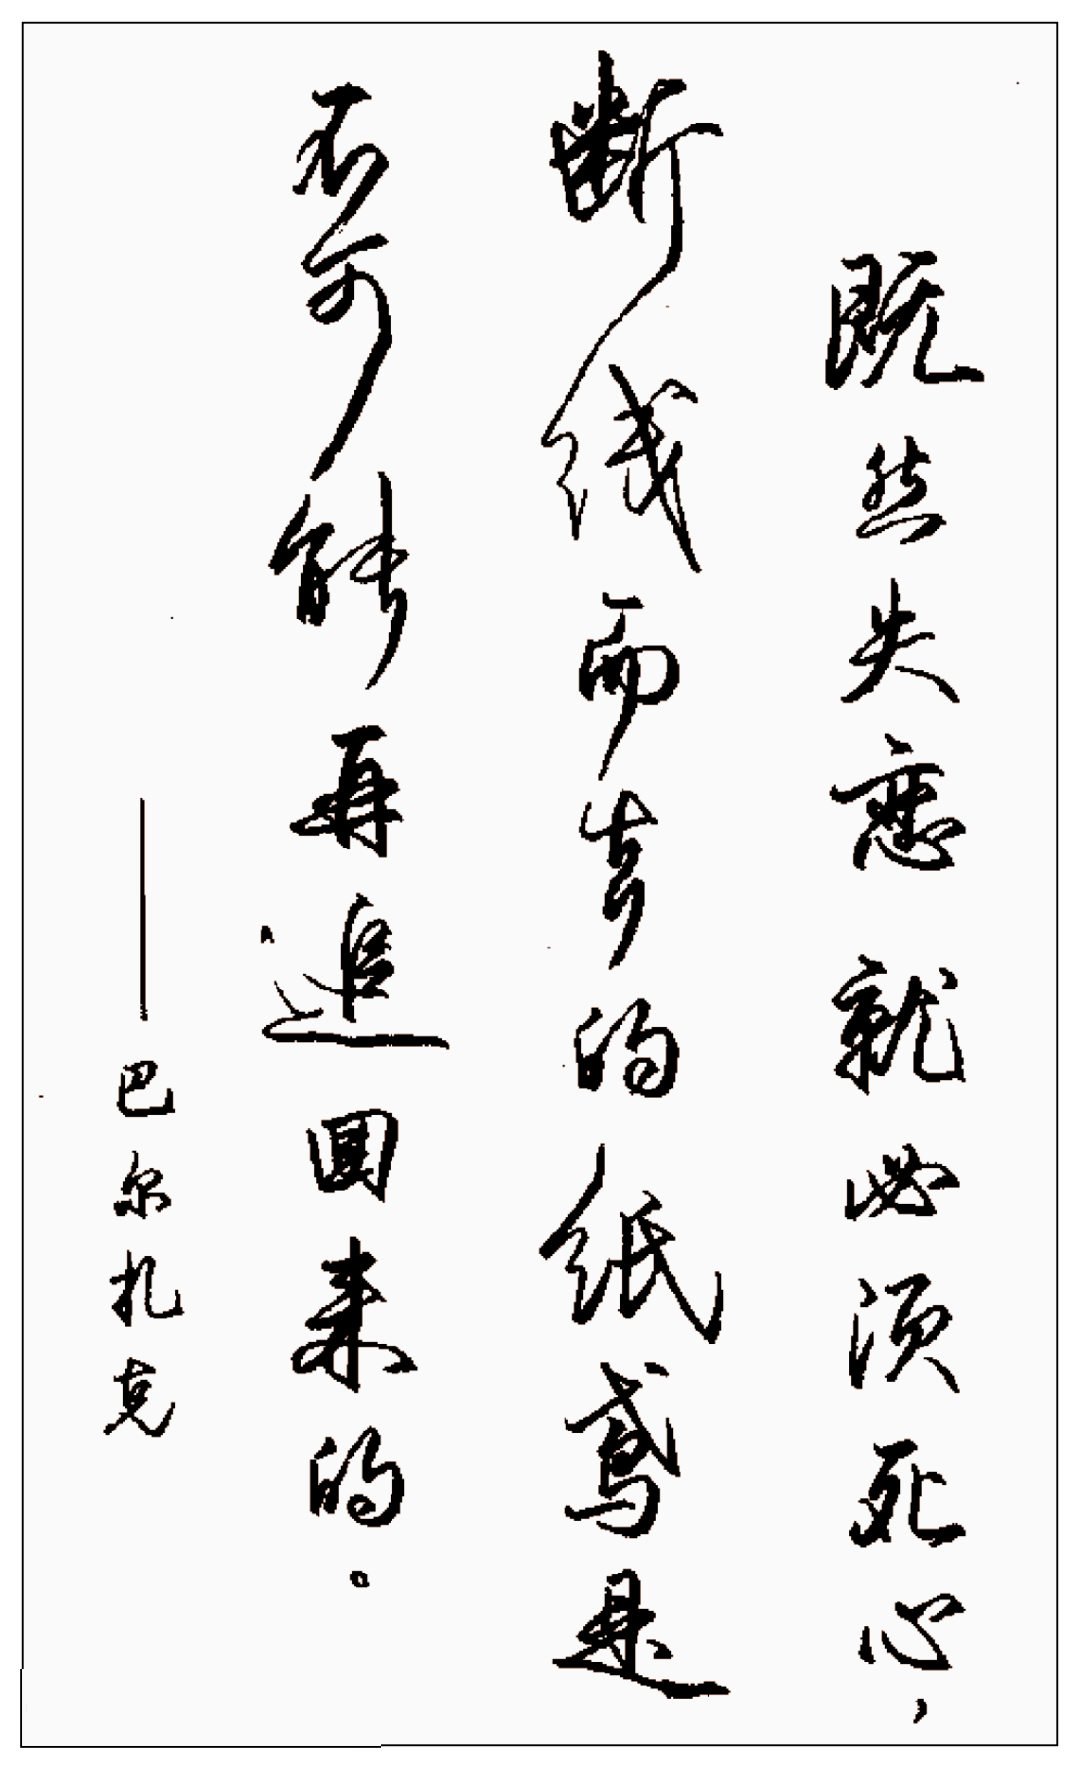 既然失恋就必须死心，
断线而去的纸鸢是
不可能再追回来的。
——巴尔扎克